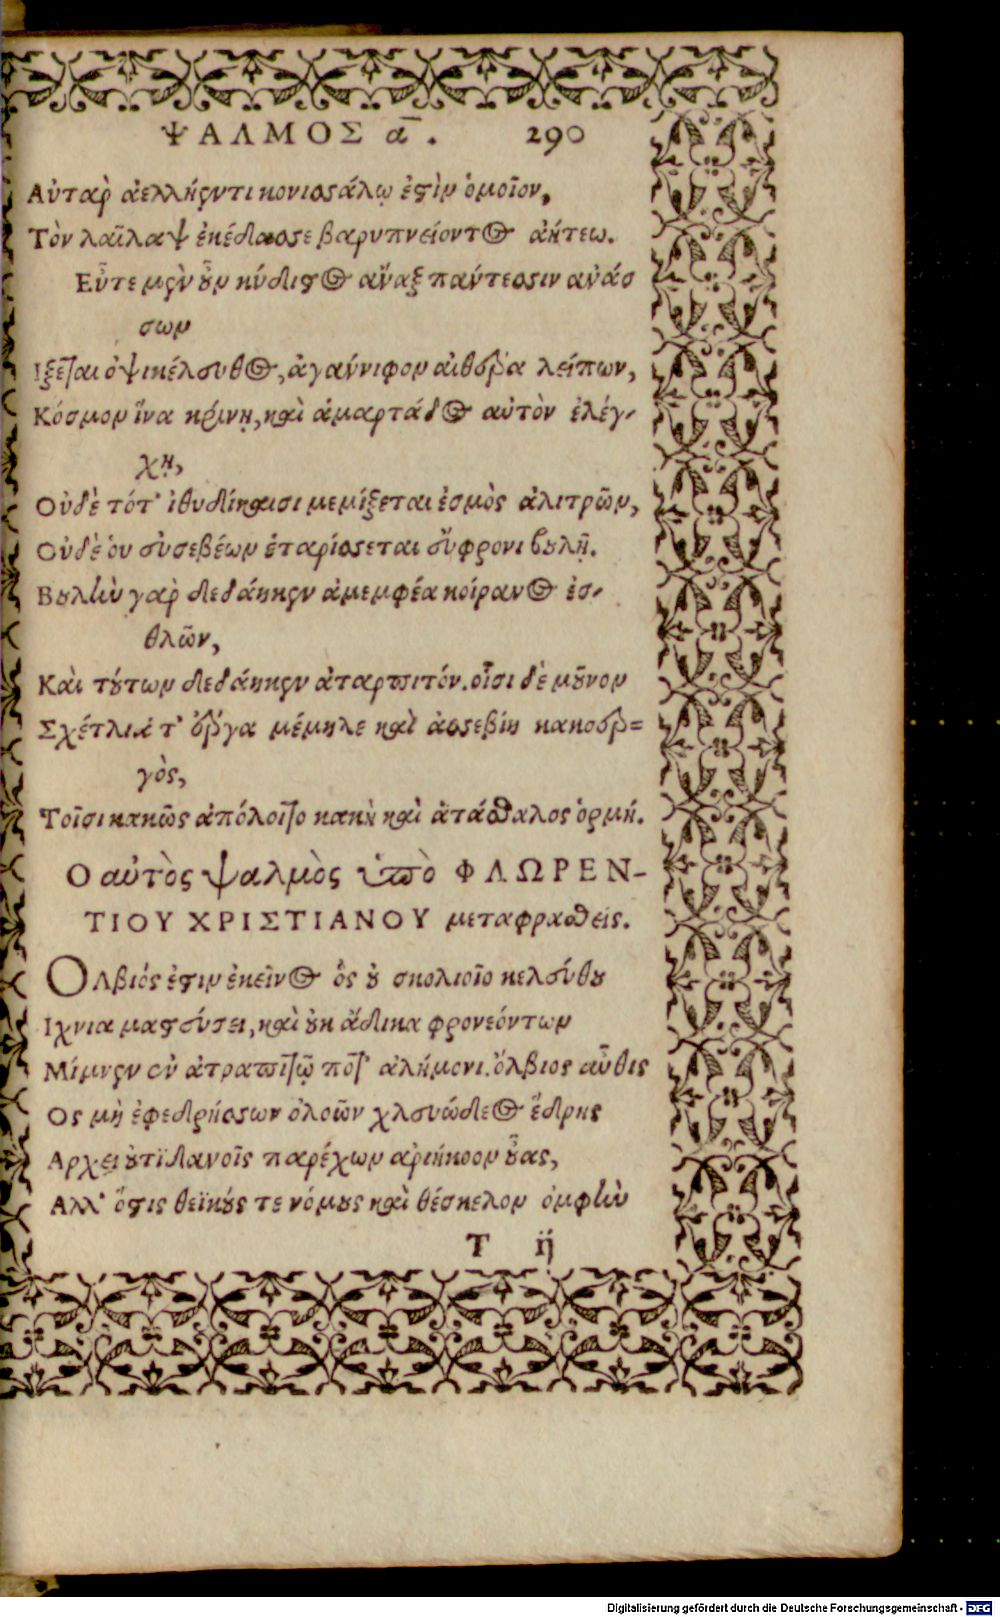 ΨΑΛΜΟΣ α. 290
Αὐτὰρ ἀελλήεντι κονισσάλῳ ἐστὶν ὁμοῖον,
Τὸν λαῖλαψ ἐκέδασσε βαρυπνείοντος ἀήτεω.
Εὖτε μὲν οὖν κύδιστος ἄναξ πάντεσσιν ἀνάσ
σων
Ιξεται ὀψικέλευθος, ἀγάννιφον αἰθέρα λείπων,
Κόσμον ἵνα κρίνῃ, καὶ ἁμαρτάδος αὐτὸν ἐλέγ-
χῃ,
Οὐδὲ τότ' ἰθυδίκαισι μεμίξεται ἑσμὸς ἀλιτρῶν,
Οὐδὲ ὁυ δυσεβέων ἑταρίσσεται εὔφρονι βουλῇ.
Βουλὴν γὰρ δεδάηκεν ἀμεμφέα κοίρανος ἐσ-
θλῶν,
Καὶ τούτων δεδάηκεν ἀταρπιτόν. οἷσι δὲ μοῦνον
Σχέτλιά τ' ἔργα μέμηλε καὶ ἀσσεβίη κακοερ=
γὸς,
Τοῖσι κακῶς ἀπόλοιτο κακὴ καὶ ἀτάσθαλος ὁρμή.
Ο αὐτὸς ψαλμὸς ὑπὸ ΦΛΩΡΕΝ-
ΤΙΟΥ ΧΡΙΣΤΙΑΝΟΥ μεταφρασθείς.
Ολβιός ἐστιν ἐκεῖνος ὃς οὐ σκολιοῖο κελεύθου
Ιχνια μαστεύσει, καὶ οὐκ ἄδικα φρονεόντων
Μίμνεν ἐν ἀτραπιτῷ ποτ' ἀλήμονι. ὄλβιος αὖθις
Ος μὴ ἐφεδρήσσων ὀλοῶν χλευώδεος ἕδρης
Αρχει οὐτιδανοῖς παρέχων ἀριήκοον οὖας,
Αλλ' ὅστις θεϊκούς τε νόμους καὶ θέσκελον ὀμφὴν
Τ ij
Digitalisierung gefördert durch die Deutsche Forschungsgemeinschaft - DFG